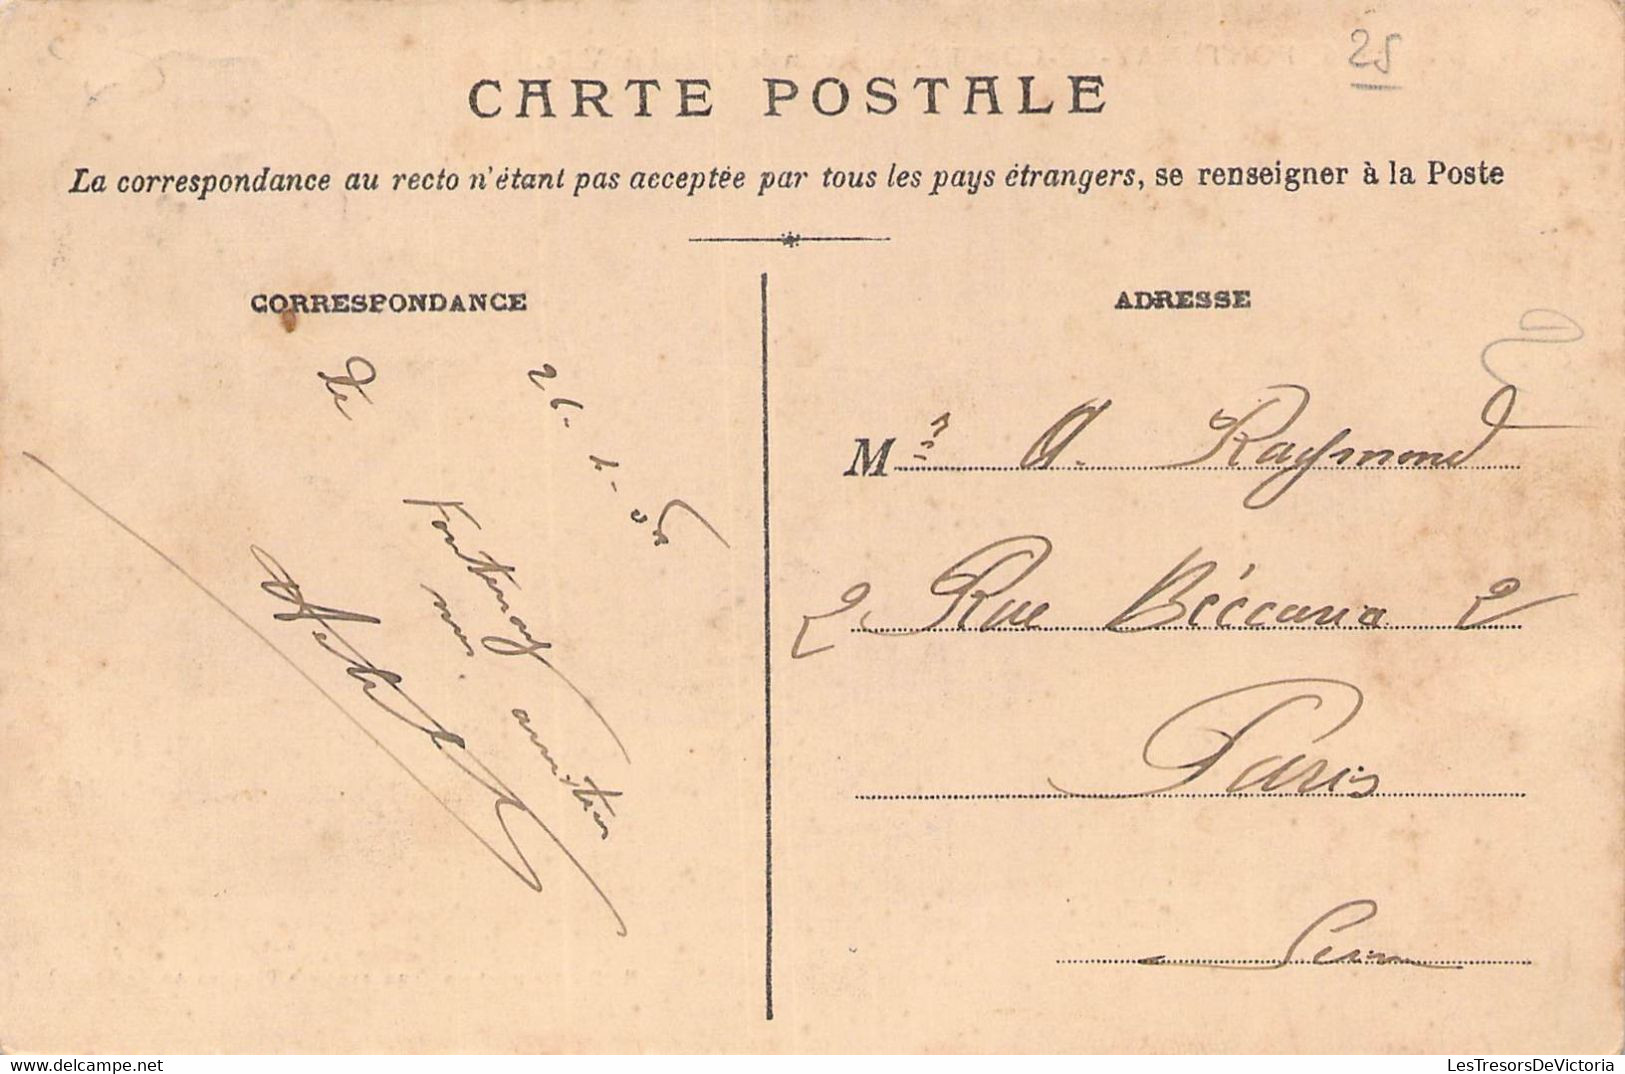 25
CARTE POSTALE
La correspondance au recto n'étant pas acceptée par tous les pays étrangers, se renseigner à la Poste
CORRESPONDANCE
26-1-06
De
Fontenay
mes amitiés
ADRESSE
Mr A. Raymond
2 Rue Béccaria 2
Paris
Seine
LesTresorsDeVictoria
delcampe.net